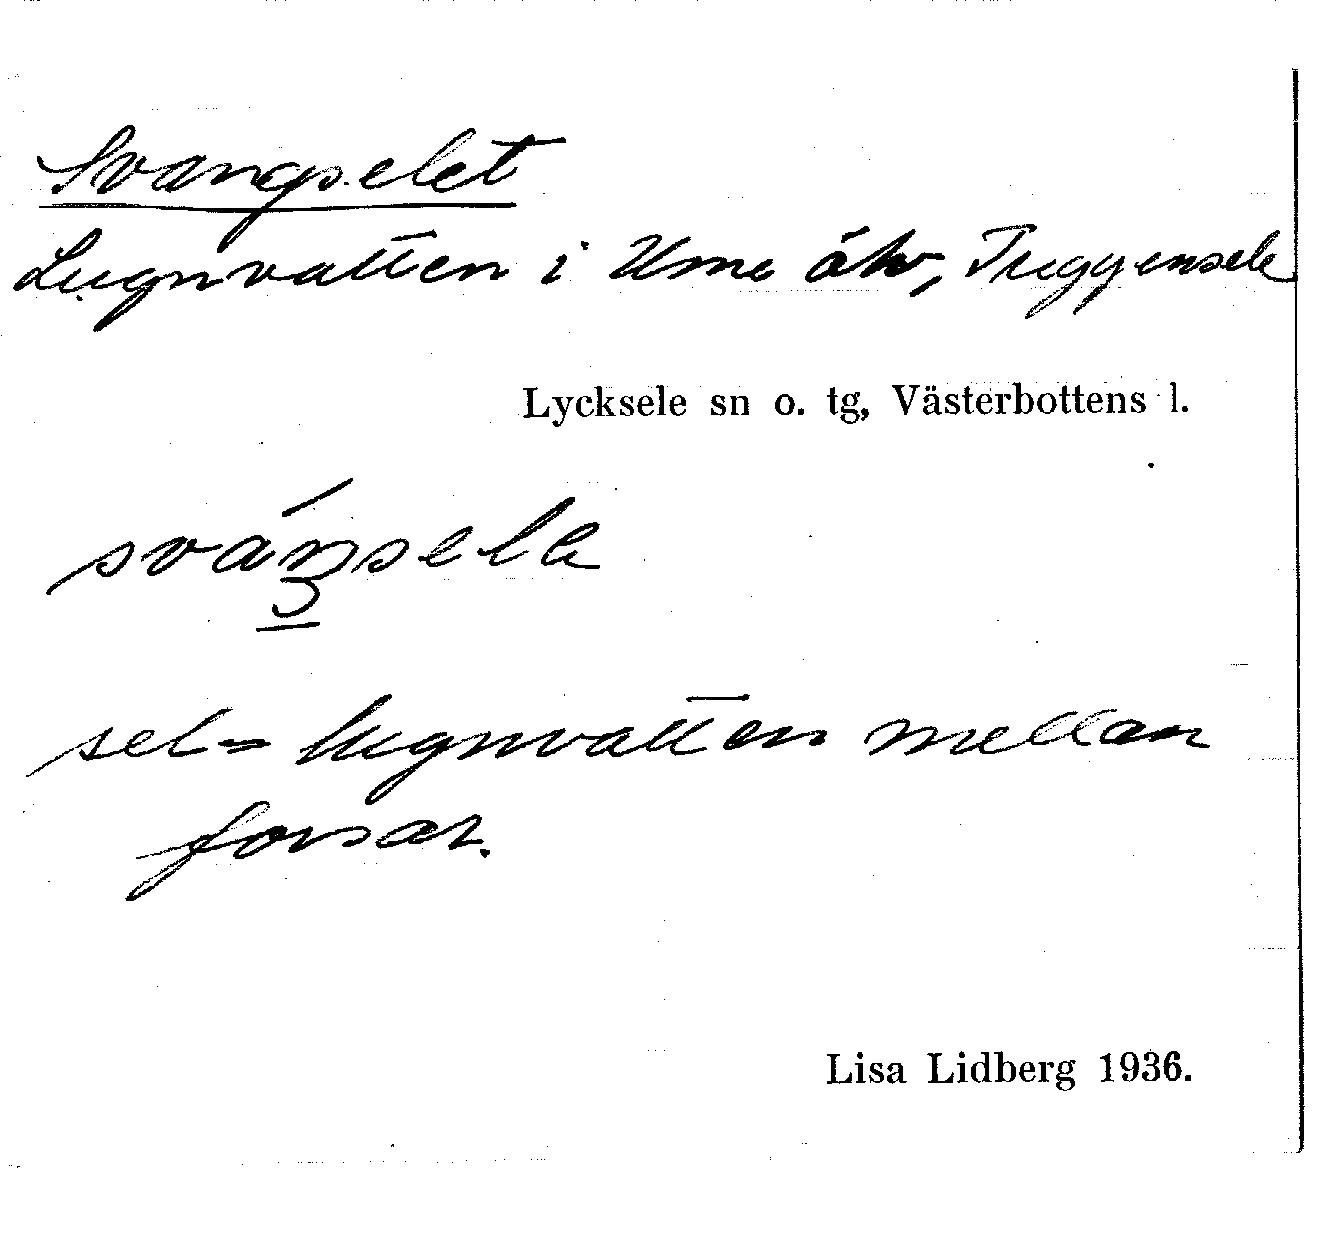 Svangselet
Lugnvatten i Ume älv, Tuggensele
Lycksele sn o. tg, Västerbottens l.
sel = lugnvatten mellan
forsar.
Lisa Lidberg 1936.